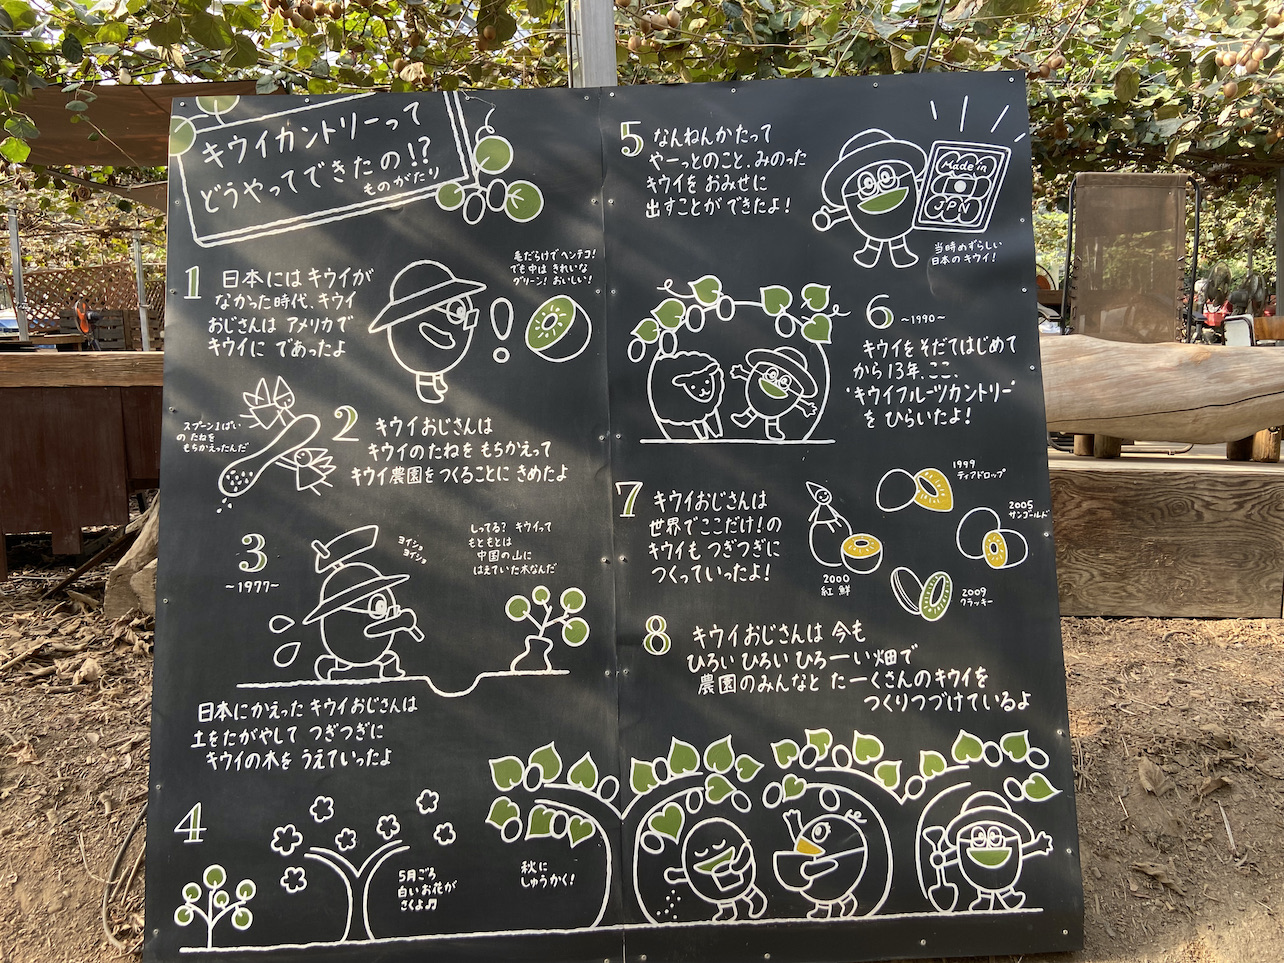 キウイカントリーって
どうやってできたの!?
ものがたり
1
日本にはキウイが
なかった時代、キウイ
おじさんは アメリカで
キウイに であったよ
毛だらけでヘンテコ!
でも中は きれいな
グリーン! おいしい!
スプーン1ぱい
の たねを
もちかえったんだ
2
キウイおじさんは
キウイのたねを もちかえって
キウイ農園をつくることに きめたよ
3
〜1977〜
ヨイショ
ヨイショ
しってる? キウイって
もともとは
中国の山に
はえていた木なんだ
日本にかえった キウイおじさんは
土をたがやして つぎつぎに
キウイの木を うえていったよ
4
5月ごろ
白いお花が
さくよ♫
秋に
しゅうかく!
5
なんねんかたって
やーっとのこと、みのった
キウイを おみせに
出すことが できたよ!
Made in
JPN
当時めずらしい
日本の キウイ!
6
〜1990〜
キウイをそだてはじめて
から13年、ここ、
"キウイフルーツカントリー"
をひらいたよ!
7
キウイおじさんは
世界でここだけ!の
キウイも つぎつぎに
つくっていったよ!
1999
ティアドロップ
2005
サンゴールド
2000
紅鮮
2009
クラッキー
8
キウイおじさんは 今も
ひろい ひろい ひろーい 畑で
農園のみんなと たーくさんのキウイを
つくりつづけているよ